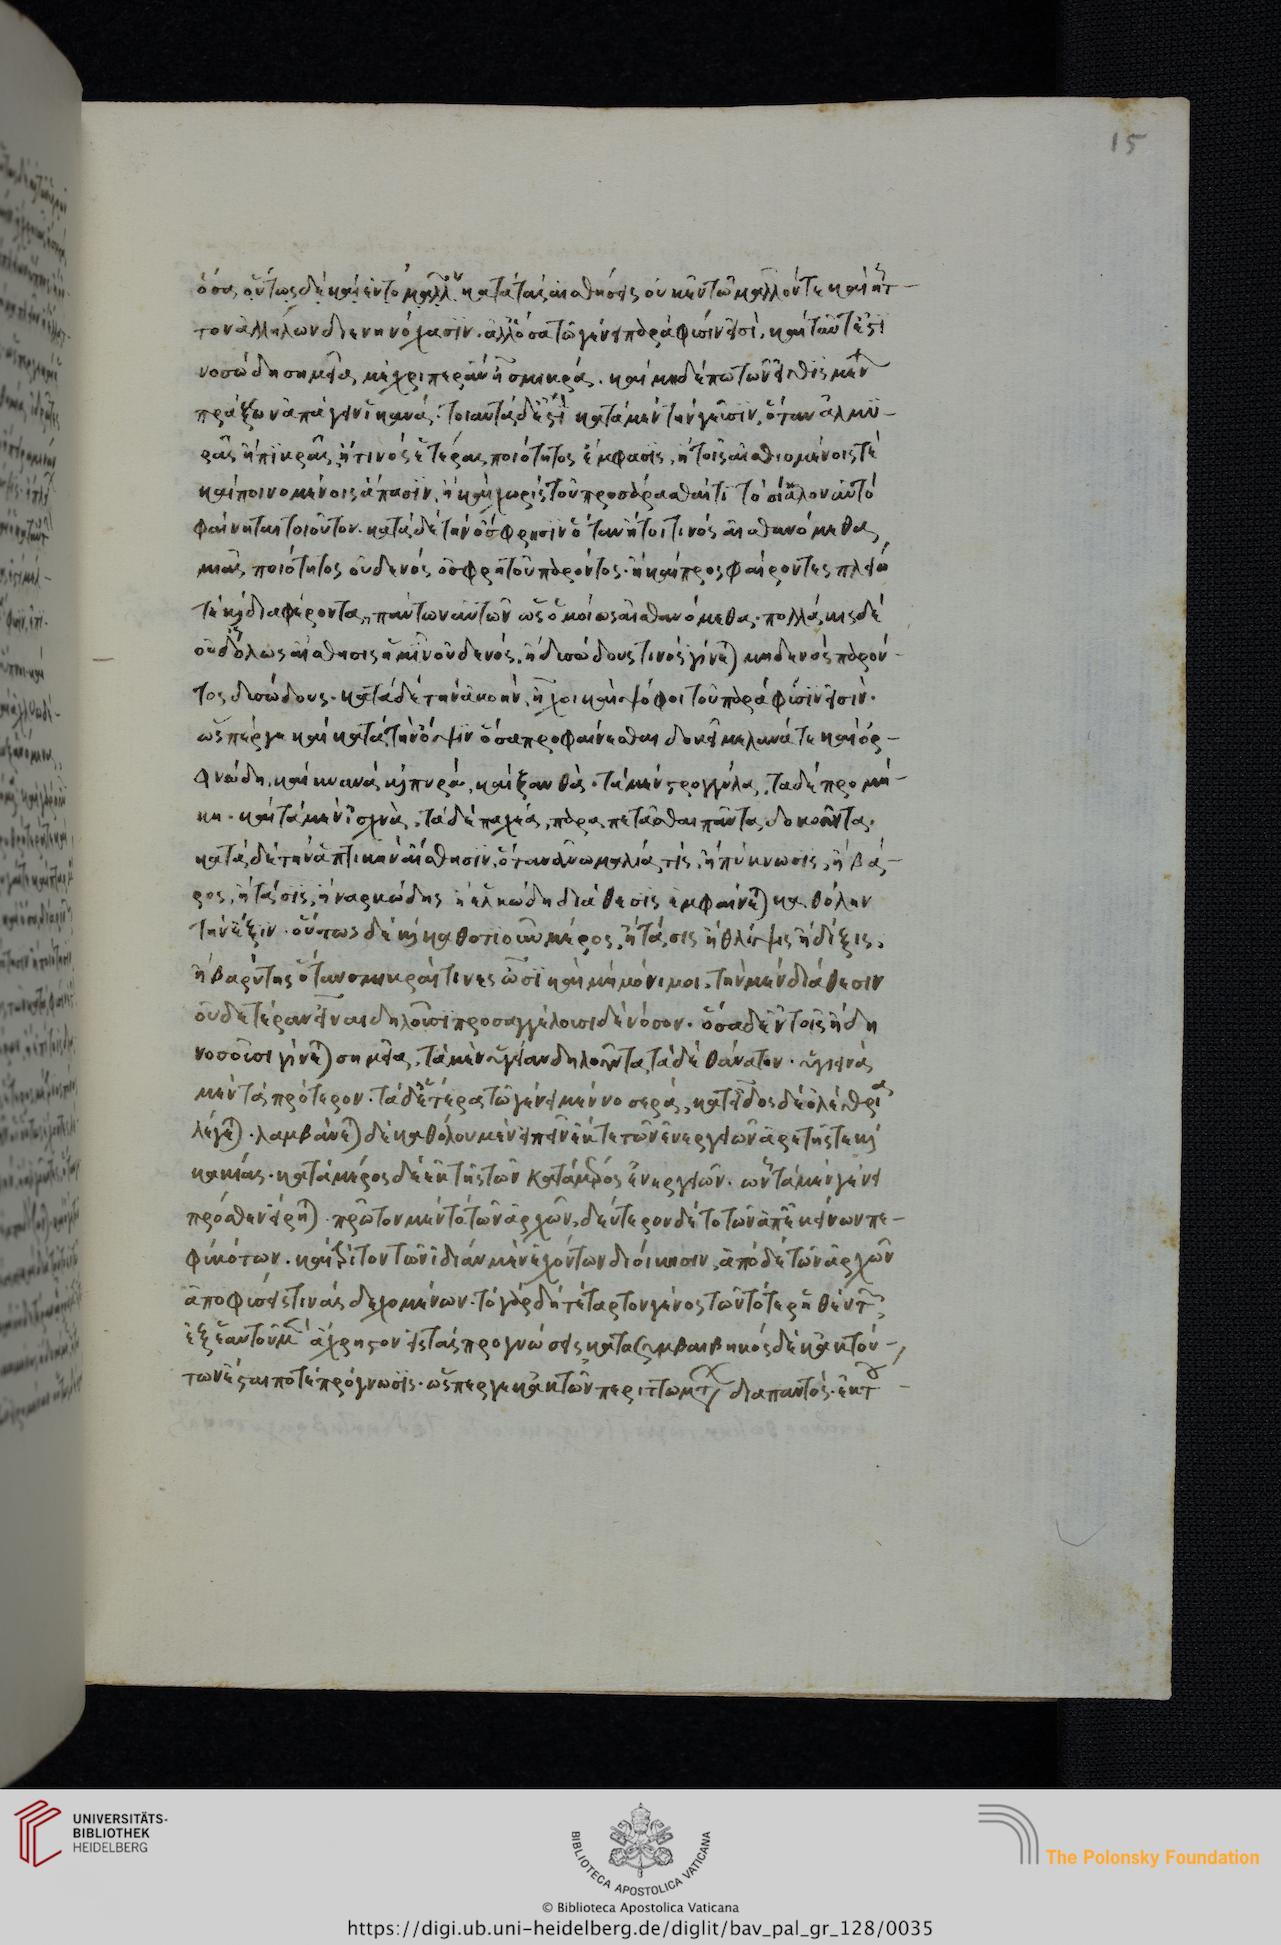 15
ὅσα, οὕτως δὲ καὶ ἐν τῷ μᾶλλ κατὰ τὰς αἰσθήσεις οὐκ ἐν τῶ μᾶλλόν τε καὶ ἧτ-
τον ἀλλήλων διενηνόχασιν. ἀλλ' ὅσα τῶ γένει παρὰ φύσιν εἰσὶ, καὶ ταῦτ' ἐστὶ
νοσώδη σημεῖα, μέχρι περ ἂν ᾖ σμικρά. καὶ μηδέπω τῶν εἰθισμέν
πράξεων ἀπάγειν ἱκανά. τοιαῦτα δέ ἐστι κατὰ μὲν τὴν γεῦσιν, ὅταν ἁλμυ-
ρᾶς ἢ πικρᾶς, ἤ τινος ἑτέρας ποιότητος ἔμφασις, ἢ τοῖς αἰσθιομένοις τὲ
καὶ πινομένοις ἅπασιν, ἢ καὶ χωρὶς τοῦ προσάρασθαί τι τὸ σίαλον αὐτὸ
φαίνηται τοιοῦτον. κατὰ δὲ τὴν ὄσφρησιν ὅταν ἤτοι τινὸς αἰσθανόμεθα,
μιᾶς ποιότητος οὐδενὸς ὀσφρητοῦ παρόντος. ἢ καὶ προσφαίροντες πλείω
τὲ καὶ διαφέροντα, πάντων αὐτῶν ὡς ὁμοίως αἰσθανόμεθα. πολλάκις δὲ
οὐδ' ὅλως αἴσθησις ἡμῖν οὐδενός, ἢ δυσώδους τινὸς γίνεται μηδενὸς παρόν-
τος δυσώδους. κατὰ δὲ τὴν ἀκοήν, ἦχοι καὶ ψόφοι τοῦ παρὰ φύσιν εἰσίν.
ὥσπέρ γε καὶ κατὰ τὴν ὄψιν ὅσα προφαίνεσθαι δοκεῖ μέλανά τε καὶ ὀρ-
φνώδη, καὶ κυανὰ καὶ πυρά, καὶ ξανθὰ. τὰ μὲν στρογγύλα, τὰ δὲ προμή-
κη. καὶ τὰ μὲν ἰσχνὰ, τὰ δὲ παχέα, παραπετᾶσθαι πάντα δοκοῦντα.
κατὰ δὲ τὴν ἁπτικὴν αἴσθησιν, ὅταν ἀνωμαλία τίς, ἢ πύκνωσις, ἢ βά-
ρος, ἢ τάσις, ἢ ναρκώδης ἢ ἑλκώδη διάθεσις ἐμφαίνεται καθόλην
τὴν ἕξιν. οὕτως δὲ καὶ καθοτιοῦν μέρος, ἢ τάσις ἢ θλίψις ἢ δῆξις,
ἢ βαρύτης ὅταν σμικραί τινες ὦσι καὶ μὴ μόνιμοι, τὴν μὲν διάθεσιν
οὐδετέραν εἶναι δηλοῦσι προσαγγέλουσι δὲ νόσον. ὅσα δ' ἐν τοῖς ἤδη
νοσοῦσι γίνεται σημεῖα, τὰ μὲν ὑγείαν δηλοῦντα τὰ δὲ θάνατον. ὑγιεινὰ
μὲν τὰ πρότερον. τὰ δ' ἕτερα τῶ γένει μὲν νοσερὰ, κατ' εἶδος δὲ ὀλέθρια
λέγεται. λαμβάνεται δὲ καθόλου μὲν εἰπεῖν ἔκ τε τῶν ἐνεργειῶν ἀρετῆς τε καὶ
κακίας. κατὰ μέρος δὲ ἐκ τῆς τῶν κατὰ μέρος ἐνεργειῶν. ὧν τὰ μὲν γένη
πρόσθεν εἴρηται. πρῶτον μὲν τὸ τῶν ἀρχῶν, δεύτερον δὲ τὸ τῶν ἀπ' ἐκείνων πε-
φυκότων. καὶ τρίτον τῶν ἰδίαν μὲν ἐχόντων διοίκησιν, ἀπὸ δὲ τῶν ἀρχῶν
ἀποφύσεις τινὰς δεχομένων. τὸ γὰρ δὴ τέταρτον γένος τῶν τότε ῥηθέντ
ἐξ ἑαυτοῦ μ ἄχρηστον εἰς τὰς προγνώσεις, κατὰ συμβεβηκὸς δὲ κἀκ τού-
των ἔσται ποτὲ πρόγνωσις. ὥσπερ γε κἀκ τῶν περιττωμάτ διαπαντός. ἐκ τ
UNIVERSITÄTS-
BIBLIOTHEK
HEIDELBERG
BIBLIOTECA APOSTOLICA VATICANA
The Polonsky Foundation
© Biblioteca Apostolica Vaticana
https://digi.ub.uni-heidelberg.de/diglit/bav_pal_gr_128/0035